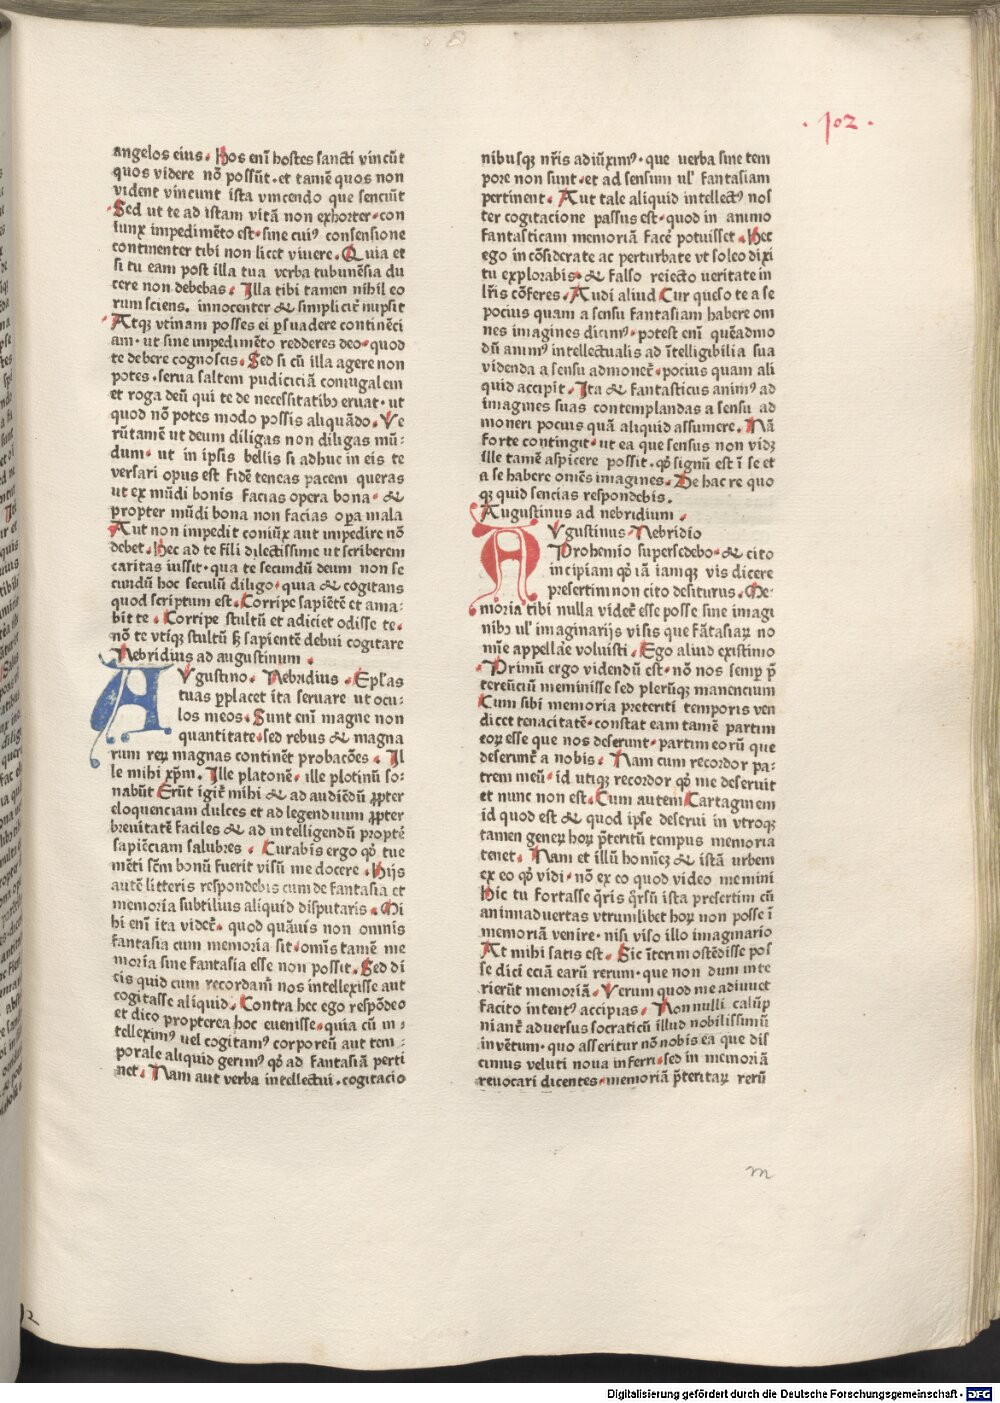 .102.
angelos eius. Hos enī hostes sancti vincūt
quos videre nō possūt. et tamē quos non
vident vincunt ista vincendo que senciūt
Sed ut te ad istam vitā non exhorter. con
iunx impedimēto est. sine cuiꝰ consensione
continenter tibi non licet viuere. Quia et
si tu eam post illa tua verba tubunēsia du
cere non debebas. Illa tibi tamen nihil eo
rum sciens. innocenter & simplicit̄ nupsit
Atqꝫ vtinam posses ei ꝑsuadere continēci
am. ut sine impedimēto redderes deo. quod
te debere cognoscis. Sed si cū illa agere non
potes. serua saltem pudiciciā coniugalem
et roga deū qui te de necessitatibꝰ eruat. ut
quod nō potes modo possis aliquādo. Ve
rūtamē ut deum diligas non diligas mū:
dum. ut in ipsis bellis si adhuc in eis te
versari opus est fidē teneas pacem queras
ut ex mūdi bonis facias opera bona. &
propter mūdi bona non facias oꝑa mala
Aut non impedit coniūx aut impedire nō
debet. Hec ad te fili dilectissime ut scriberem
caritas iussit. qua te secundū deum non se
cundū hoc seculū diligo. quia & cogitans
quod scriptum est. Corripe sapiētē et ama:
bit te. Corripe stultū et adiciet odisse te.
nō te vtiqꝫ stultū sꝫ sapientē debui cogitare
Nebridius ad augustinum.
AVgustino. Nebridius. Epl̄as
tuas ꝑplacet ita seruare ut ocu:
los meos. Sunt enī magne non
quantitate. sed rebus & magna
rum reꝝ magnas continēt probacōes. Il
le mihi xp̄m. Ille platonē. ille plotinū so:
nabūt Erūt igit̄ mihi & ad audiēdū ꝓpter
eloquenciam dulces et ad legenduum ꝓpter
breuitatē faciles & ad intelligendū proptē
sapiēciam salubres. Curabis ergo qđ tue
mēti scm̄ bonū fuerit visū me docere. Hijs
autē litteris respondebis cum de fantasia et
memoria subtilius aliquid disputaris. Mi
hi enī ita videt̄. quod quāuis non omnis
fantasia cum memoria sit. omīs tamē me
moria sine fantasia esse non possit. Sed di
cis quid cum recordam̄ nos intellexisse aut
cogitasse aliquid. Contra hec ego respōdeo
et dico propterea hoc euenisse. quia cū in:
telleximꝰ uel cogitamꝰ corporeū aut tem:
porale aliquid gerimꝰ qđ ad fantasiā perti
net. Nam aut verba intellectui. cogitacio
nibusqꝫ nr̄is adiūximꝰ. que uerba sine tem
pore non sunt. et ad sensum ul' fantasiam
pertinent. Aut tale aliquid intellectꝰ nos
ter cogitacione passus est. quod in animo
fantasticam memoriā facē potuisset. Hec
ego incōsiderate ac perturbate vt soleo dixi
tu explorabis. & falso reiecto ueritate in
lr̄is cōferes. Audi aliud Cur queso te a se
pocius quam a sensu fantasiam habere om
nes imagines dicimꝰ. potest enī quēadmo
dū animꝰ intellectualis ad ītelligibilia sua
videnda a sensu admonet̄. pocius quam ali
quid accipit. Ita & fantasticus animꝰ ad
imagines suas contemplandas a sensu ad
moneri pocius quā aliquid assumere. Nā
forte contingit. ut ea que sensus non videt
ille tamē aspicere possit. qđ signū est ī se et
a se habere omēs imagines. De hac re quo
qꝫ quid sencias respondebis.
Augustinus ad nebridium.
AVgustinus. Nebridio
Prohemio supersedebo. & cito
incipiam qđ iā iamqꝫ vis dicere
presertim non cito desiturus. Me:
moria tibi nulla videt̄ esse posse sine imagi
nibꝰ ul' imaginarijs visis que fātasiaꝝ no
mīe appellae voluisti. Ego aliud existimo
Primū ergo videndū est. nō nos semꝑ p̄
tereūciū meminisse sed plerūqꝫ manencium
Cum sibi memoria preteriti temporis ven
dicet tenacitatē. constat eam tamē partim
eoꝝ esse que nos deserunt. partim eorū que
deserunt̄ a nobis. Nam cum recordor pa:
trem meū. id utiqꝫ recordor qđ me deseruit
et nunc non est. Cum autem Cartaginem
id quod est & quod ipse deserui in vtroqꝫ
tamen geneꝝ hoꝝ p̄teritū tempus memoria
tenet. Nam et illū hominē & istā urbem
ex eo qđ vidi. nō ex eo quod video memini
Hic tu fortasse q̄ris q̄rsū ista presertim cū
animaduertas vtrumlibet hoꝝ non posse ī
memoriā venire. nisi viso illo imaginario
At mihi satis est. Sic īterim ostēdisse pos
se dici eciā earū rerum. que non dum inte
rierūt memoriā. Verum quod me adiuuet
facito intentꝰ accipias. Non nulli calūp
niant̄ aduersus socraticū illud nobilissimū
inventum. quo asseritur nō nobis ea que dis
cimus veluti noua inferri. sed in memoriā
reuocari dicentes. memoriā p̄teritaꝝ rerū
m
2
Digitalisierung gefördert durch die Deutsche Forschungsgemeinschaft - DFG